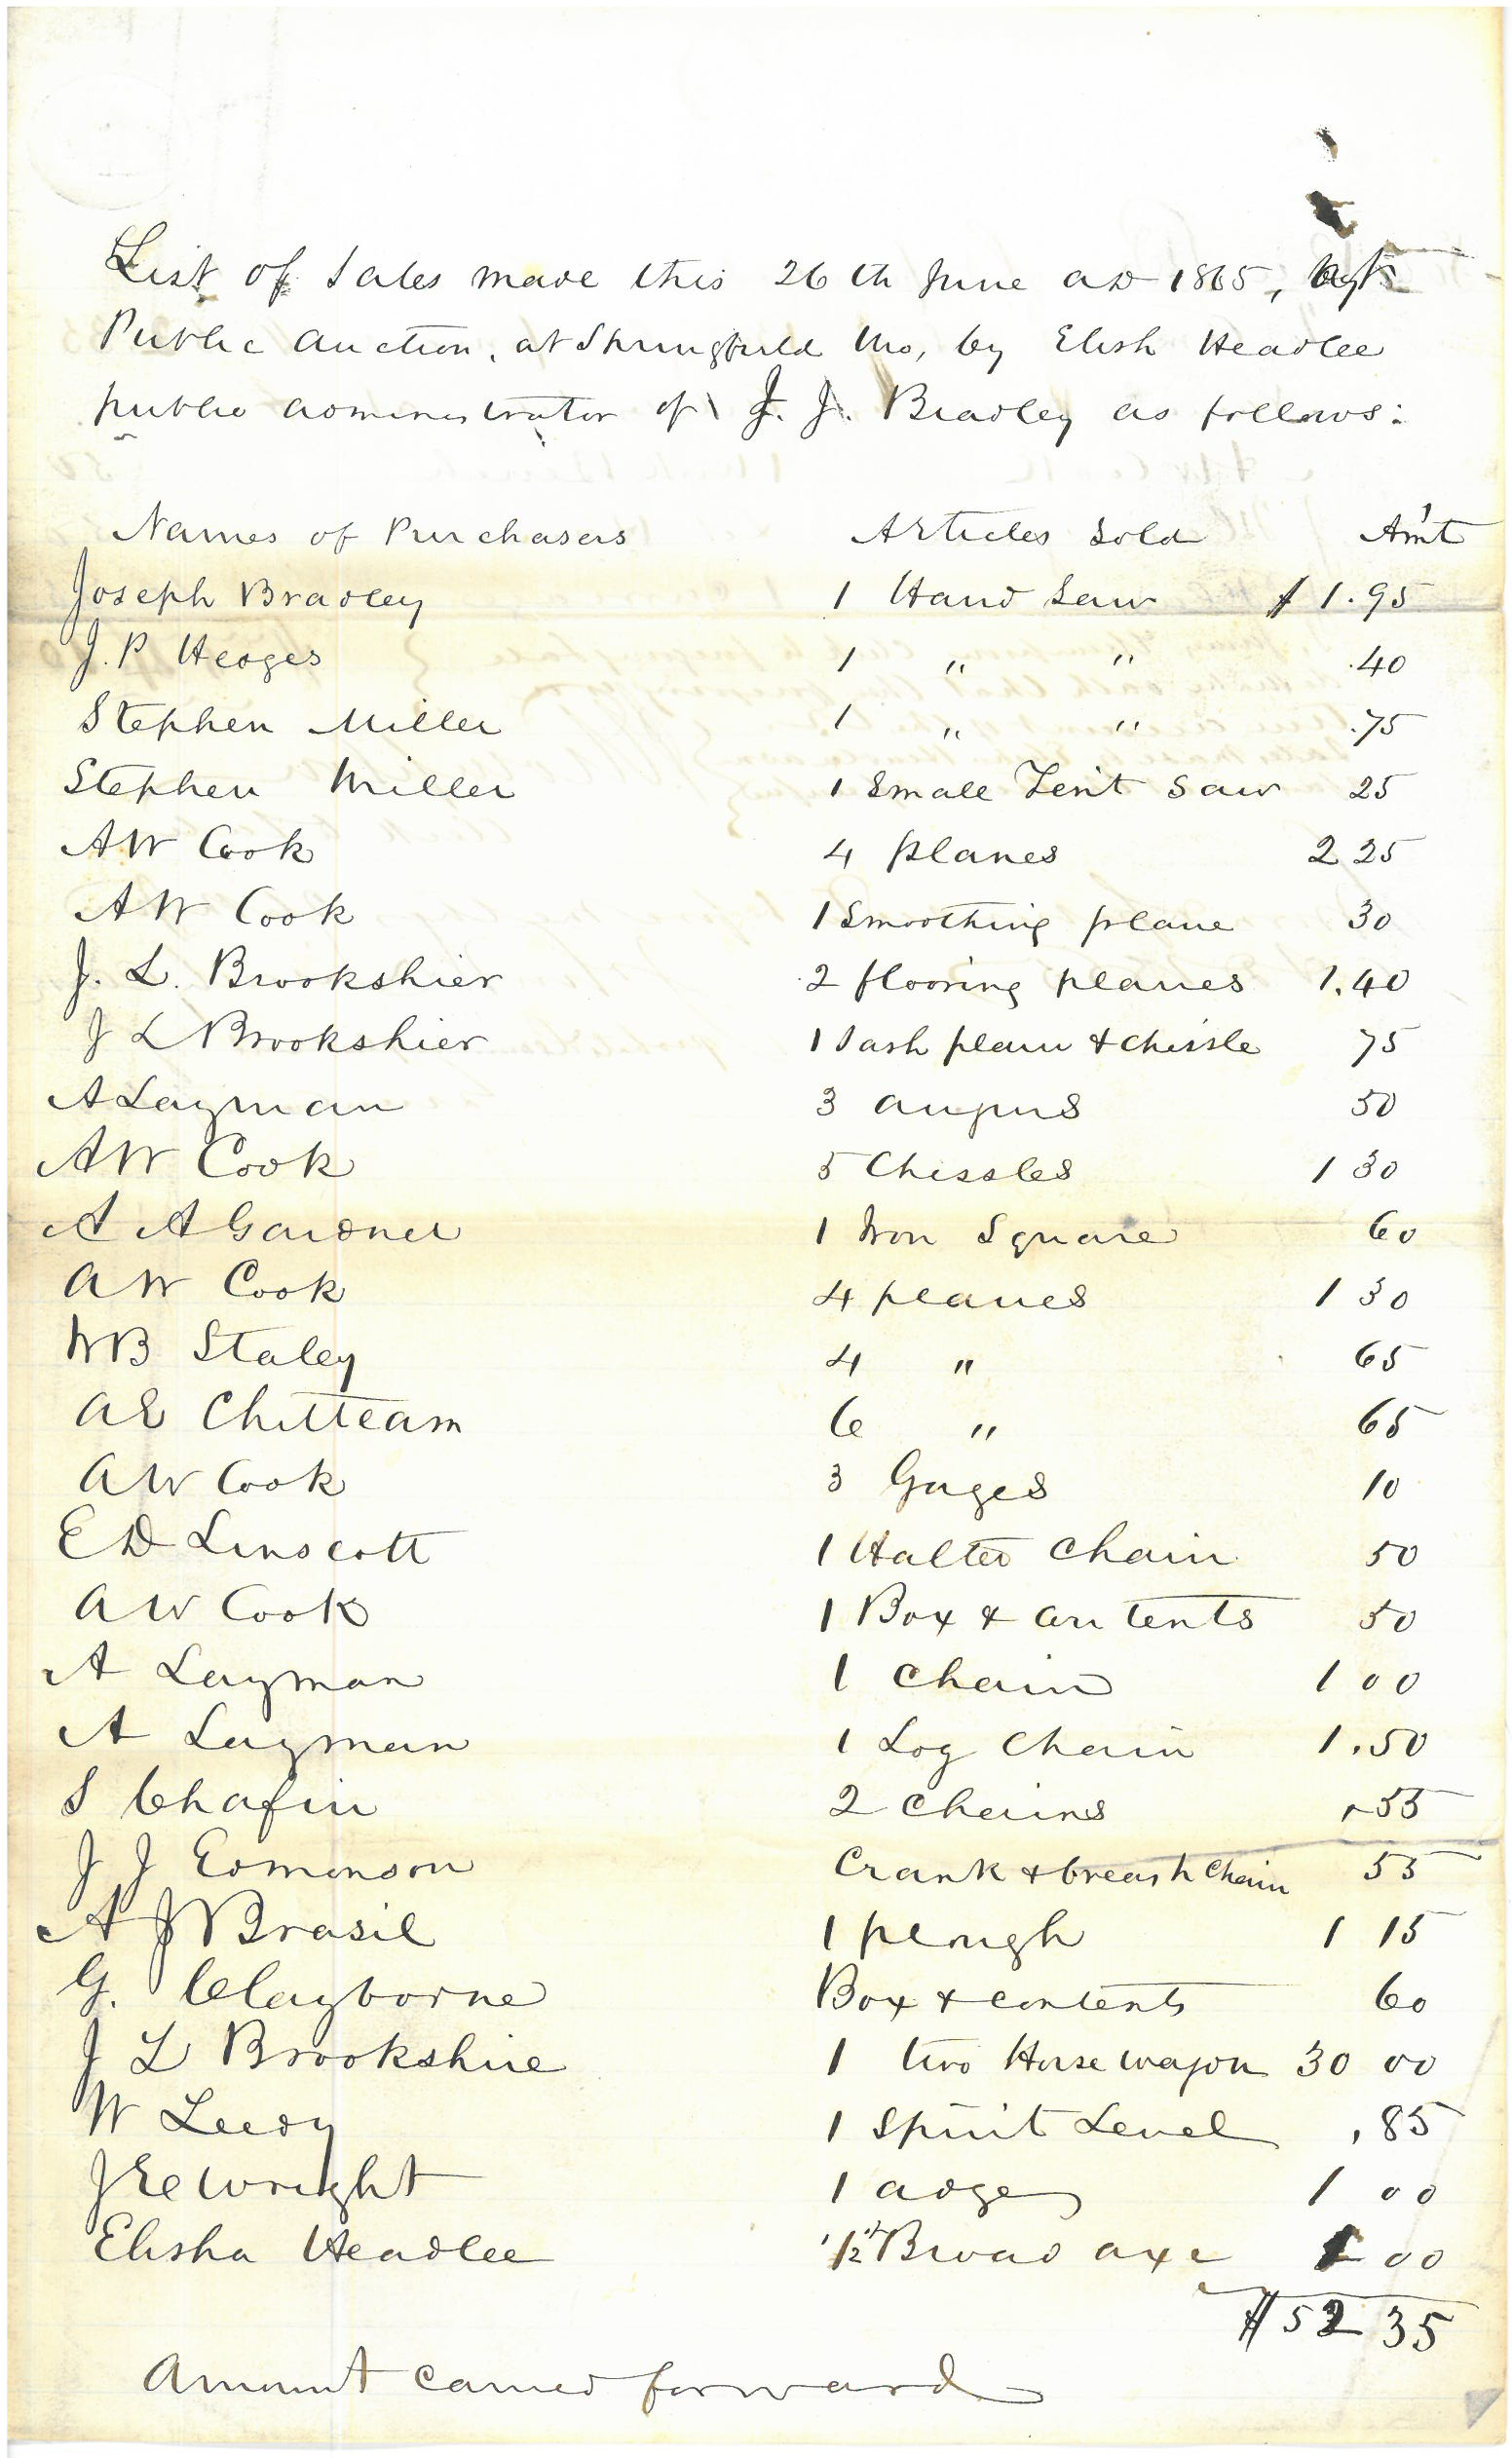 List of Sales made this 26th June AD 1865, at
Public Auction, at Springfield Mo, by Elish Headlee
public administrator of J. J. Bradley as follows:
Names of Purchasers Articles Sold Am't
Joseph Bradley 1 Hand Saw $ 1.95
J. P Hedges 1 " " .40
Stephen Miller 1 " " .75
Stephen Miller 1 Small Ten't Saw 25
AW Cook 4 planes 2 25
AW Cook 1 Smoothing plane 30
J. L. Brookshier 2 flooring planes 1.40
J L Brookshier 1 Sash plain & chissle 75
A Layman 3 augurs 50
AW Cook 5 Chissles 1 30
A A Gardner 1 Iron Square 60
AW Cook 4 planes 1 30
WB Staley 4 " 65
AE Chitteam 6 " 65
AW Cook 3 Gages 10
ED Linscott 1 Halter Chain 50
AW Cook 1 Box & contents 50
A Layman 1 Chain 1 00
A Layman 1 Log Chain 1.50
S Chafin 2 Chains .55
J J Edmonson Crank & breast Chain 55
A J Brasil 1 plough 1 15
G. Clayborne Box & contents 60
J L Brookshire 1 two Horse wagon 30 00
W Leedy 1 Spirit Level .85
J E Wright 1 adge 1 00
Elisha Headlee 1/2 Broad axe 1 00
$ 52 35
Amount carried forward